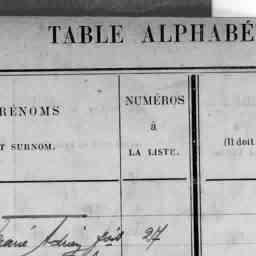 TABLE ALPHABÉ
RÉNOMS
T SURNOM.
NUMÉROS
à
LA LISTE.
(Il doit
Adrien 27